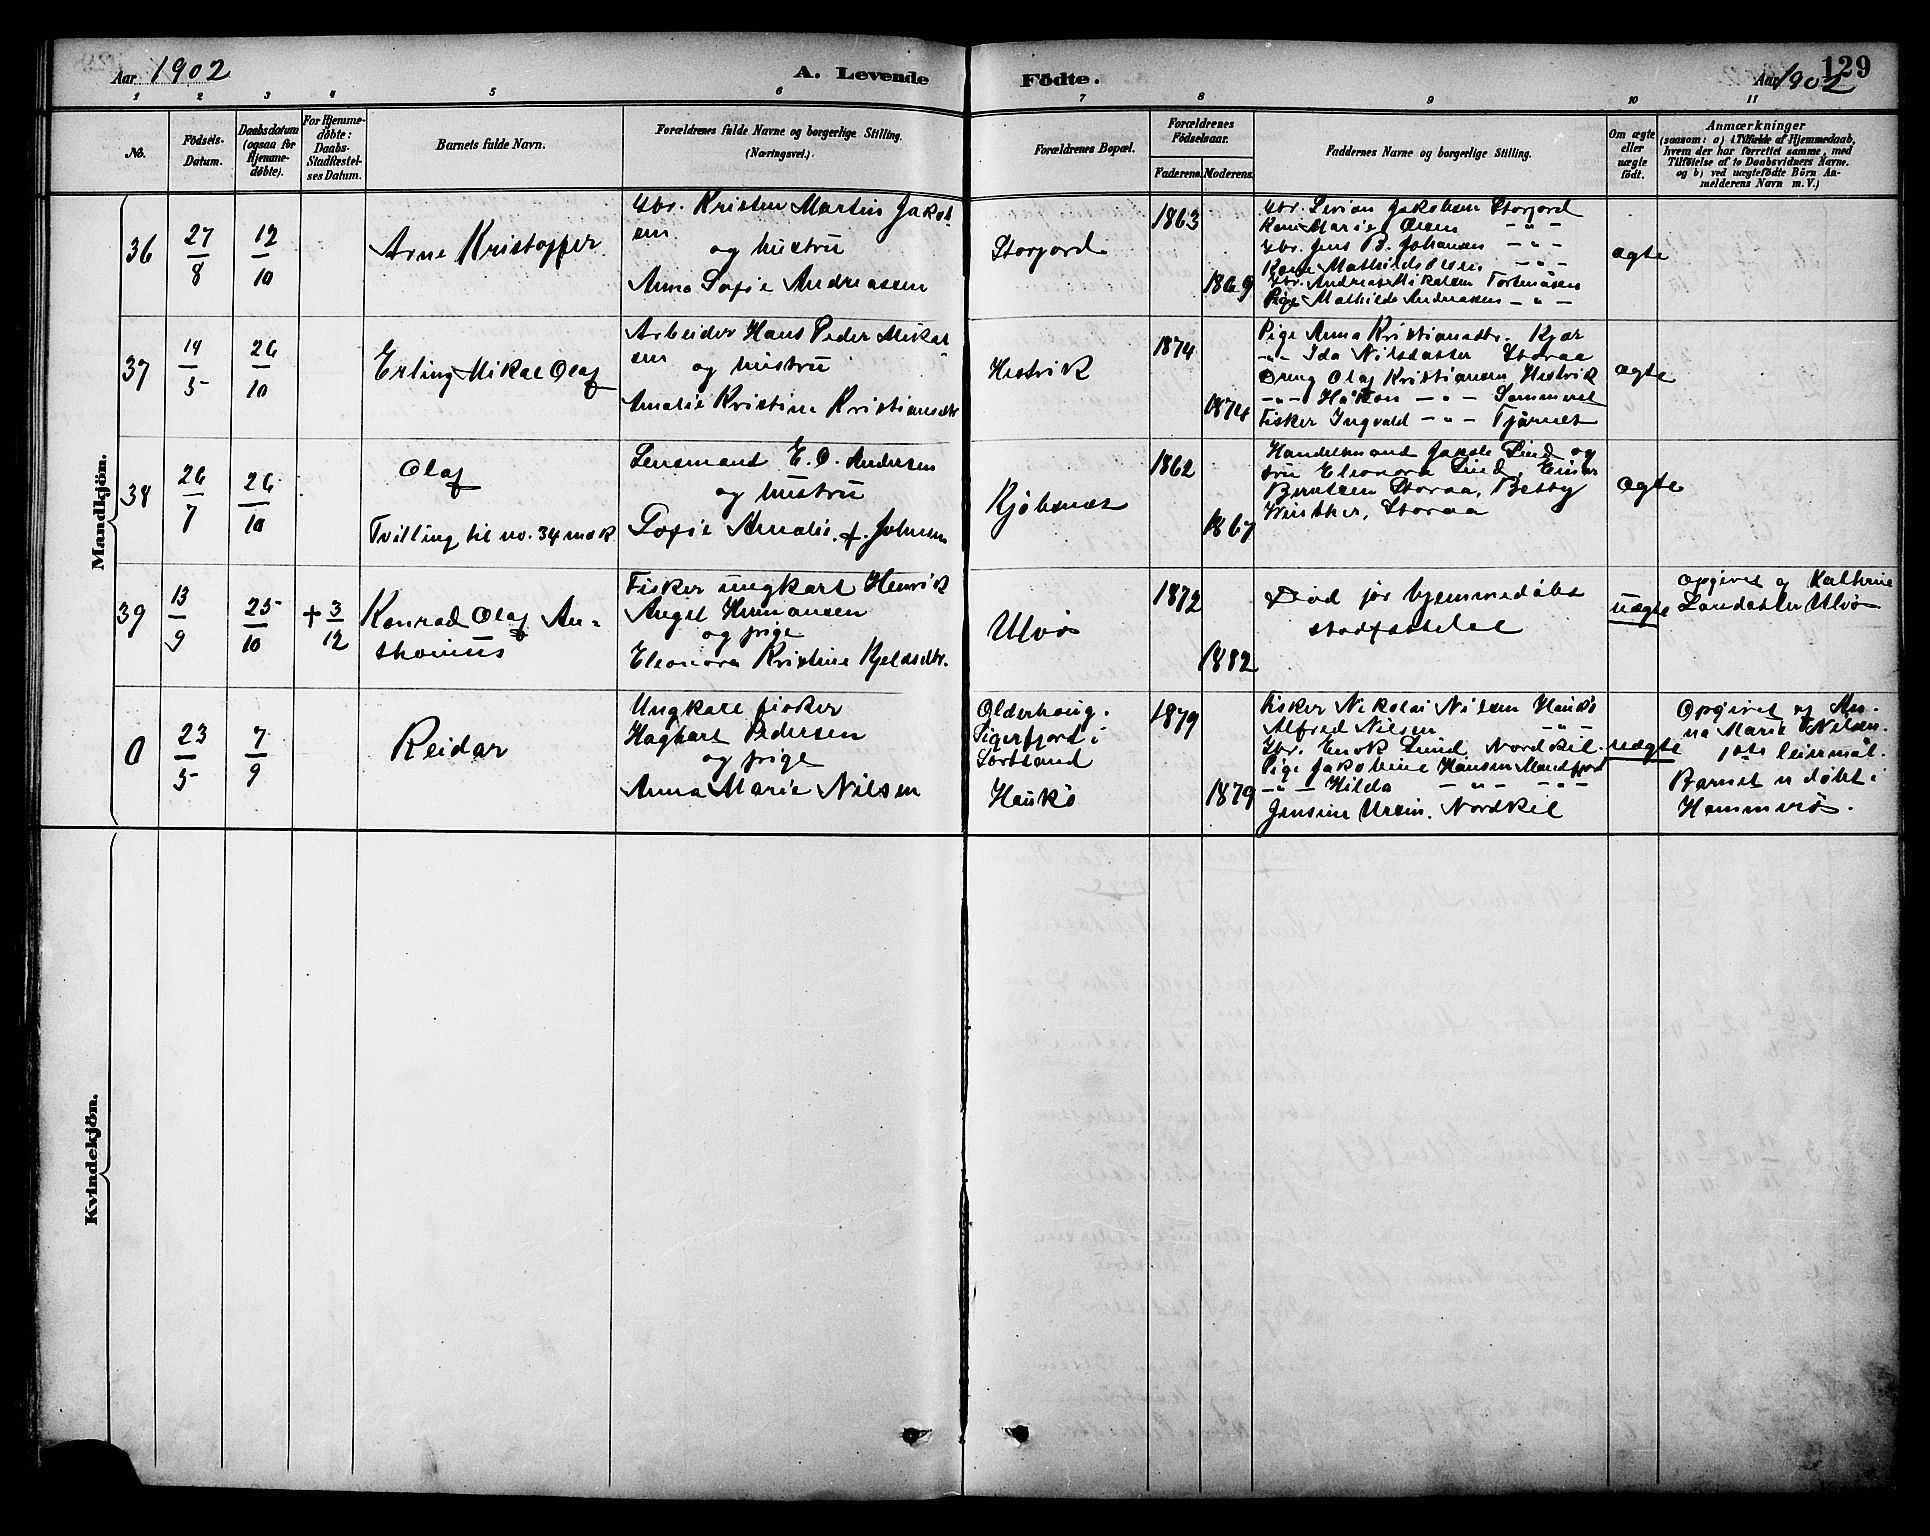 Aar 1902
A. Levende
Födte.
Aar 1902
129
1 2 3 4 5 6 7 8 9 10 11
No.
Födsels-
Datum.
Daabsdatum
(ogsaa for
Hjemme-
döbte).
For Hjemme-
döbte:
Daabs-
Stadfæstel-
ses Datum.
Barnets fulde Navn.
Forældrenes fulde Navne og borgerlige Stilling.
(Næringsvei.)
Forældrenes Bopæl.
Forældrenes
Födselsaar.
Faderens.
Moderens.
Faddernes Navne og borgerlige Stilling.
Om ægte
eller
uægte
födt.
Anmærkninger
(saasom: a) i Tilfælde af Hjemmedaab,
hvem der har forrettet samme, med
Tilföielse af to Daabsvidners Navne.
og b) ved uægtefödte Börn An-
melderens Navn m. V.)
Mandkjön.
36
27/8
12/10
Arne Kristoffer
Gbr. Kristen Martin Jakob
sen
og hustru
Anna Sofie Andreasen
Storjord
1863
1869
Gbr. Jakobsen Storjord
Kone Marie Olsen - " -
Gbr. Jens B. Johansen - " -
Kone Mathilde Olsen - " -
Gbr. Andreas Mikalsen
Pige Mathilde Andreasen - " -
ægte
37
14/5
26/10
Erling Mikal Olaf
Arbeider Hans Peder Mikal
sen
og hustru
Amalie Kristine Kristiansdtr
Hestvik
1874
1874
Pige Anna Kristiansdtr. Kjær
- " - Ida Nilsdatter Storaa
Dreng Olaf Kristiansen Hestvik
- " - Håkon - " - Sommerset
Fisker Ingvald - " - Tjårnes
ægte
38
26/7
26/10
Olaf
Tvilling til no. 34 mæk
Lensmand E. O. Andersen
og hustru
Sofie Amalie, f. Johnsen
Kjøbsnæs
1862
1867
Handelsmand Lind og
fru Eleonora Lind, Einar
Berntsen Storaa, Betsy
Winther, Storaa
ægte
39
13/9
25/10
+ 3/12
Konrad Olaf An-
thonius
Fisker ungkart Henrik
Angel Hermansen
og pige
Eleonora Kristine Kjeldsdtr.
Ulvø
1872
1882
Død før hjemmedøbt
stadfæstelse
uægte
Opgivet af Kathrine
Ulvø
0
23/5
7/9
Reidar
Ungkare fisker
Hagbart Pedersen
og pige
Anna Marie Nilsen
Olderhaug.
Sigerfjord i
Sortland
Haukø
1879
1879
Fisker Nikolai Nilsen Haukø
Alfred Nilsen - " -
Gbr. Enok Lund Nordkil.
Pige Jakobine Hansen
- " - Hilda - " - - " -
Jensine Ursin. Nordkil
uægte
Opgivet af An-
na Marie Nilsen.
1ste leiermål.
Barnet er døbt i
Hammerø.
Kvindekjön.